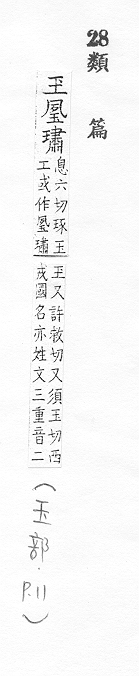 28類篇
玊璛
息六切琢玉
工或作璛
玊又許救切又須玉切西
戎國名亦姓文三重音二
(玉部.P.11)